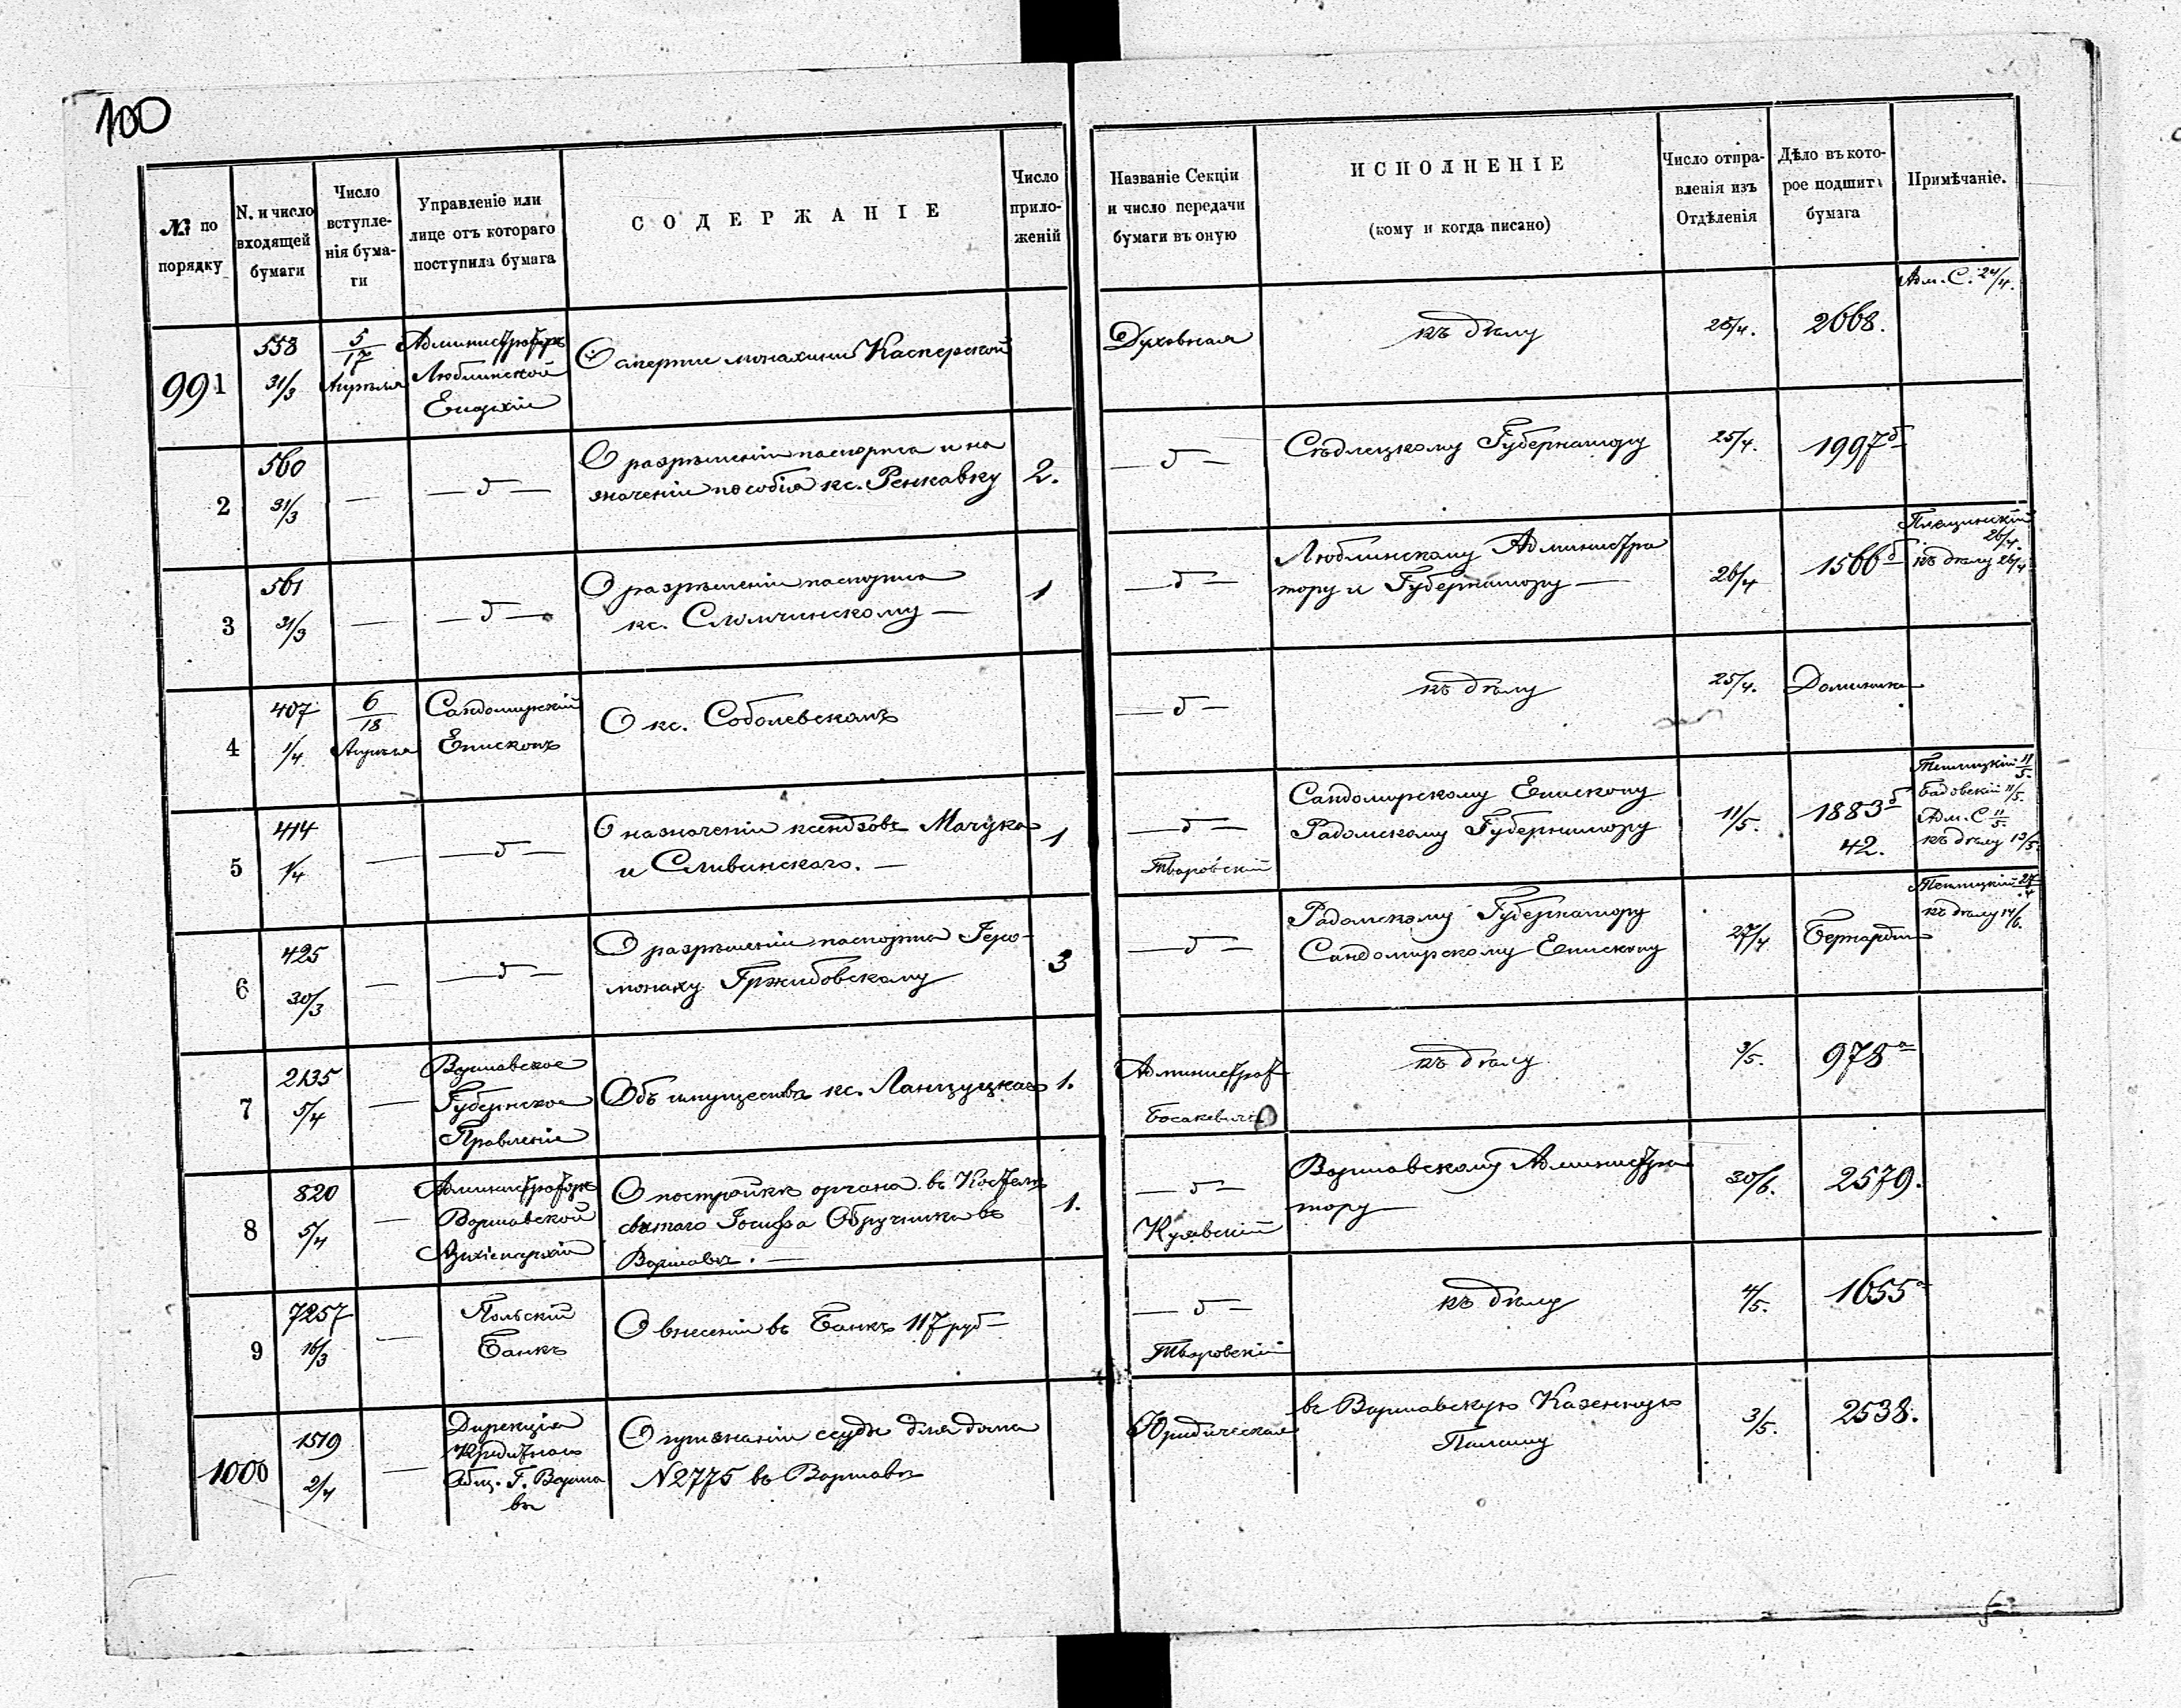 100
№ по порядку
N. и число входящей бумаги
Число вступленія бумаги
Управленіе или лице отъ котораго поступила бумага
СОДЕРЖАНІЕ
Число приложеній
Названіе Секціи и число передачи бумаги въ оную
ИСПОЛНЕНІЕ
(кому и когда писано)
Число отправленія изъ Отдѣленія
Дѣло въ которое подшита бумага
Примѣчаніе.
991
558
31/3
5/17 Апрѣля
Администраторъ
Люблинской
Епархіи
О смерти монахини Касперской
Духовная
къ дѣлу
25/4.
2668.
Адм. С. 24/4.
2
560
31/3
—
— „ —
О разрѣшеніи паспорта и на
значеніи пособія кс. Ренкавку
2.
— „ —
Сѣдлецкому Губернатору
25/4.
1997б
3
561
31/3
—
— „ —
О разрѣшеніи паспорта
кс. Сломчинскому —
1
— „ —
Люблинскому Администра
тору и Губернатору —
26/4
1566б
26/4.
къ дѣлу 26/4
4
407
1/4
6/18 Апрѣля
Сандомирскій
Епископъ
О кс. Соболевскомъ
— „ —
къ дѣлу
25/4.
5
414
1/4
—
— „ —
О назначеніи ксендзовъ Мачука
и Сливинскаго. —
1
— „ —
Тваровскій
Сандомирскому Епископу
Радомскому Губернатору
11/5.
1883б
42.
11/5.
11/5.
Адм. С 11/5.
къ дѣлу 13/5.
6
425
30/3
—
— „ —
О разрѣшеніи паспорта Іеро-
монаху Гржибовскому
3
— „ —
Радомскому Губернатору
Сандомирскому Епископу
27/4
Бернардин
27/4
къ дѣлу 14/6.
7
2135
5/4
—
Варшавское
Губернское
Правленіе
Объ имуществѣ кс. Ланцуцкаго
1.
Администрат
къ дѣлу
3/5.
978а
8
820
5/4
—
Администраторъ
Варшавской
Архіепархіи
О постройкѣ органа въ Костелѣ
святаго Іосифа Обручника въ
Варшавѣ. —
1.
— „ —
Куявскій
Варшавскому Администра
тору
30/6.
2579.
9
7257
16/3
—
Польскій
Банкъ
О внесеніи въ Банкъ 117 руб —
— „ —
Тваровскій
къ дѣлу
4/5.
1655а
1000
1519
2/4
—
Дирекція
Кредитнаго
Общ. Г. Варша
вы
О признаніи ссуды для дома
N 2775 въ Варшавѣ
Юридическая
въ Варшавскую Казенную
Палату
3/5.
2538.